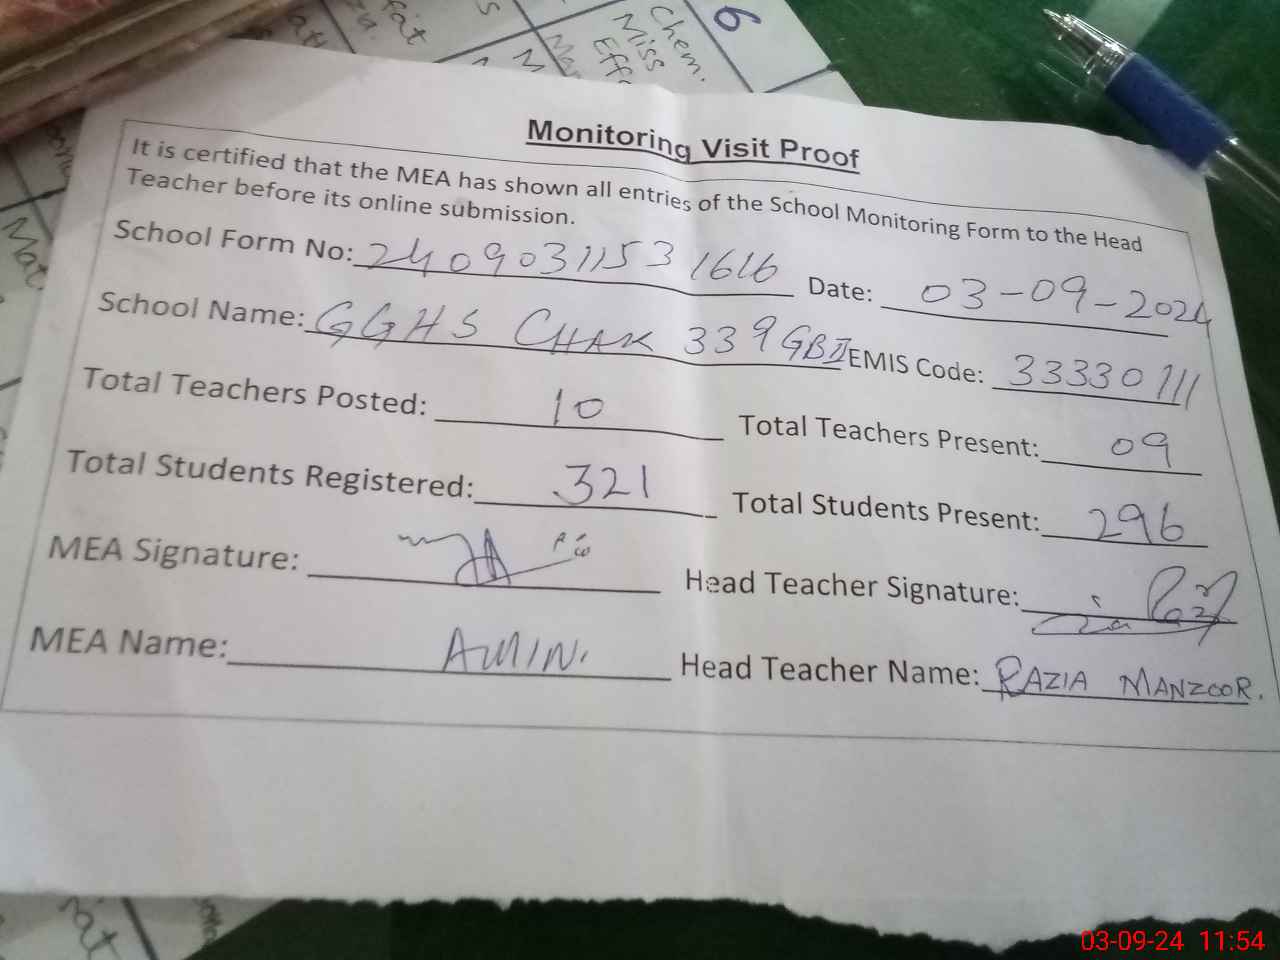 6
Chem.
Miss
Monitoring Visit Proof
It is certified that the MEA has shown all entries of the School Monitoring Form to the Head
Teacher before its online submission.
School Form No: 24090311531616 Date: 03-09-2024
School Name: GGHS CHAK 339 GB II EMIS Code: 33330111
Total Teachers Posted: 10 Total Teachers Present: 09
Total Students Registered: 321 Total Students Present: 296
MEA Signature: Head Teacher Signature:
MEA Name: AMIN. Head Teacher Name: RAZIA MANZOOR.
03-09-24 11:54